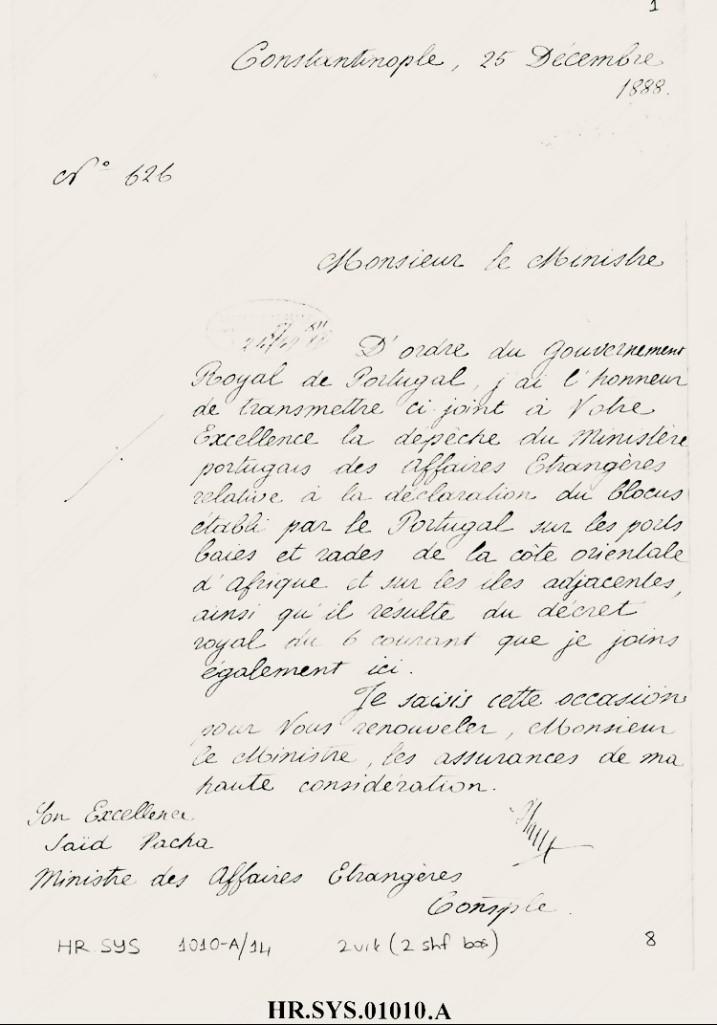 1
Constantinople, 25 Décembre
1888.
N° 626
Monsieur le Ministre
D'ordre du Gouvernement
Royal de Portugal, j'ai l'honneur
de transmettre ci-joint à Votre
Excellence la dépèche du Ministère
portugais des Affaires Etrangères
relative à la déclaration du blocus
établi par le Portugal sur les ports
baies et rades de la côte orientale
d'Afrique et sur les îles adjacentes,
ainsi qu'il résulte du décret
royal du 6 courant que je joins
également ici.
Je saisis cette occasion
pour Vous renouveler, Monsieur
le Ministre, les assurances de ma
haute considération.
Son Excellence
Saïd Pacha
Ministre des Affaires Etrangères
Consple.
HR.SYS 1010-A/14 2 vrk (2 shf boş) 8
HR.SYS.01010.A